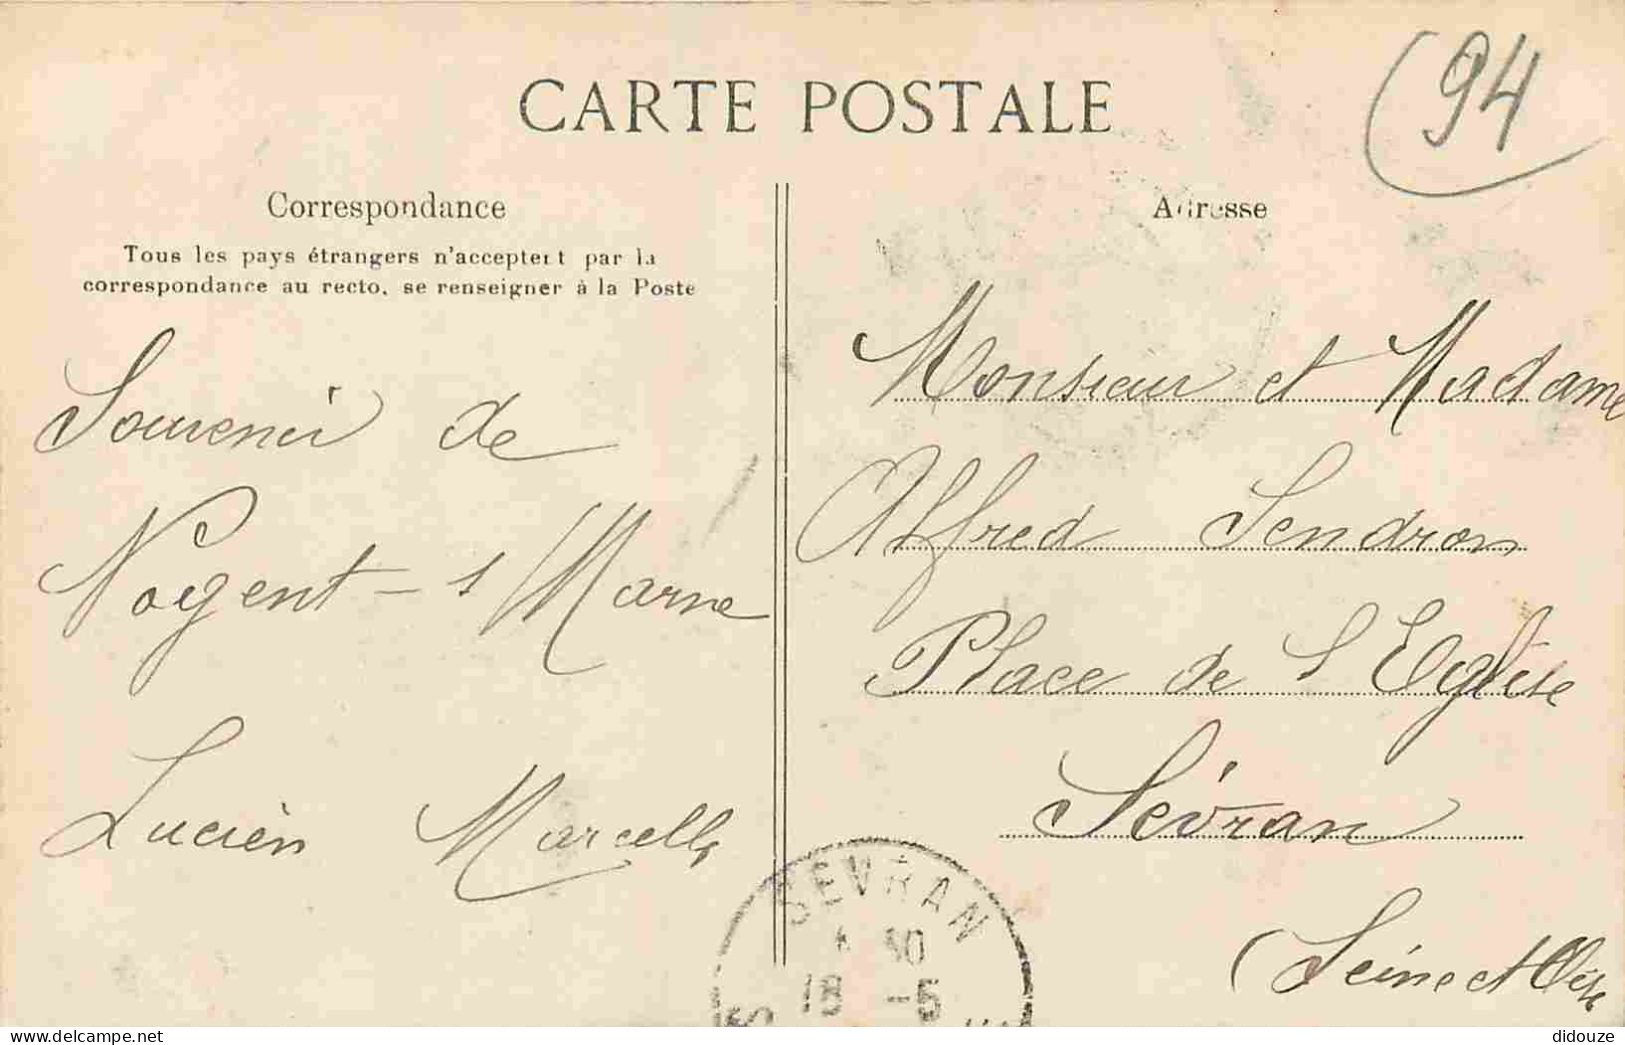 CARTE POSTALE
(94
Correspondance
Tous les pays étrangers n'acceptent par la
correspondance au recto, se renseigner à la Poste
Souvenir de
Nogent - s/Marne
Lucien Marcelle
Adresse
Monsieur et Madame
Alfred Sendron
Place de l'Eglise
Sévran
(Seine et Oise
SEVRAN
18 -5
didouze